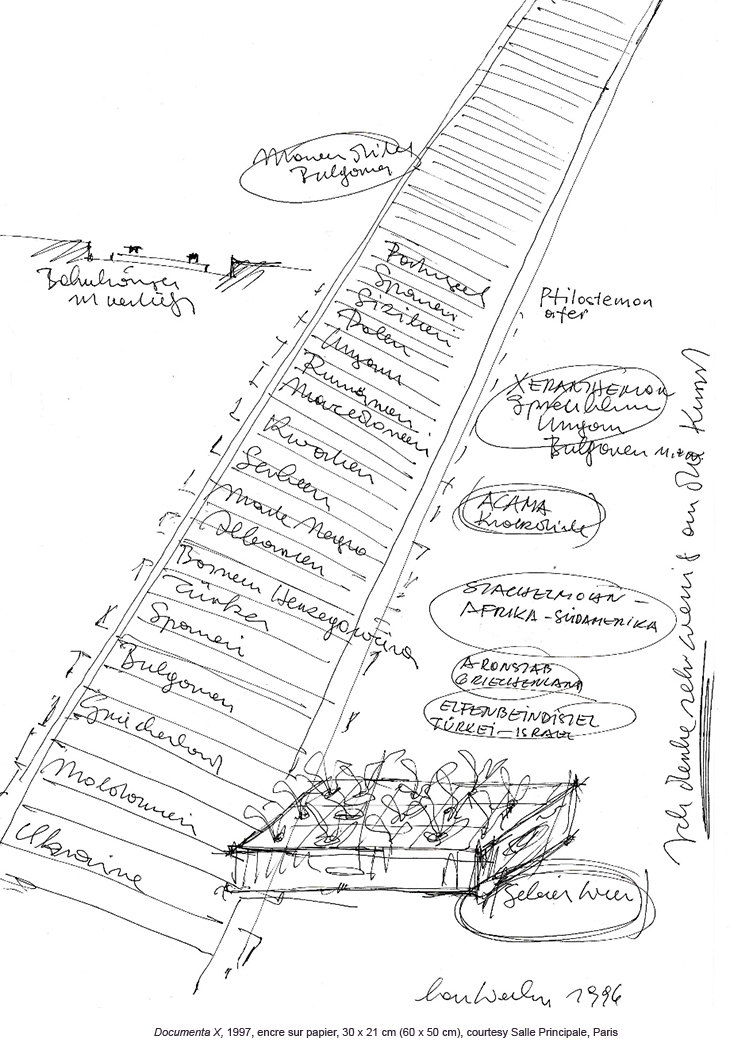 Bulgarien
Bahnkörper
Portugal
Spanien
Sizilien
Polen
Ungarn
Rumänien
Macedonien
Kroatien
Serbien
Monte Negro
Albanien
Bosnien Herzegowina
Türkei
Spanien
Bulgarien
Griechenland
Moldawien
Ukraine
Ptilostemon
afer
XERANTHEMUM
Spreublume
Ungarn
Bulgarien
STACHELMOHN -
AFRIKA - SÜDAMERIKA
ARONSTAB
GRIECHENLAND
ELFENBEINDISTEL
TÜRKEI - ISRAEL
Ich denke sehr wenig an die Kunst
1996
Documenta X, 1997, encre sur papier, 30 x 21 cm (60 x 50 cm), courtesy Salle Principale, Paris